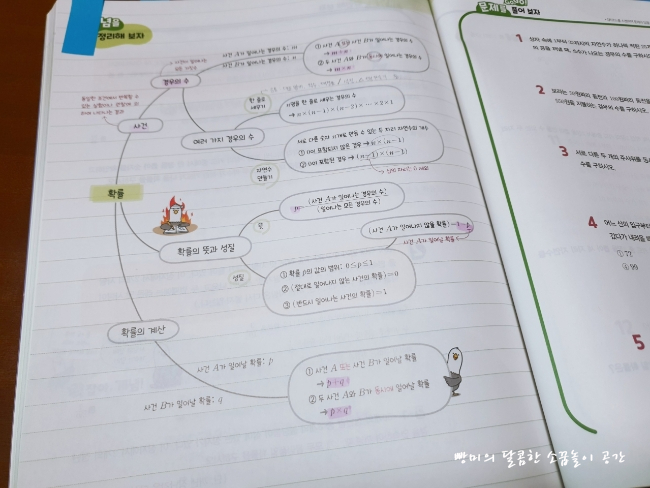 정리해 보자
사건 A가 일어나는 경우의 수: m
사건 B가 일어나는 경우의 수: n
경우의 수
① 사건 A 또는 사건 B가 일어나는 경우의 수
② 두 사건 A와 B가 동시에 일어나는 경우의 수
사건
한 줄로
세우기
n명을 한 줄로 세우는 경우의 수
→ n×(n-1)×(n-2)×…×2×1
여러 가지 경우의 수
자연수
만들기
서로 다른 숫자 n개로 만들 수 있는 두 자리 자연수의 개수
① 0이 포함되지 않은 경우 → n×(n-1)
② 0이 포함된 경우 → (n-1)×(n-1)
확률
뜻
(사건 A가 일어나는 경우의 수)
(일어나는 모든 경우의 수)
확률의 뜻과 성질
(사건 A가 일어나지 않을 확률)=1-p
사건 A가 일어날 확률
성질
① 확률 p의 값의 범위: 0≤p≤1
② (절대로 일어나지 않는 사건의 확률)=0
③ (반드시 일어나는 사건의 확률)=1
확률의 계산
사건 A가 일어날 확률: p
사건 B가 일어날 확률: q
① 사건 A 또는 사건 B가 일어날 확률
→ p+q
② 두 사건 A와 B가 동시에 일어날 확률
→ p×q
문제를 풀어 보자
1
2
3 서로 다른 두 개의 주사위를 동시
수를 구하시오.
4 어느 산의 입구부터
① 72
④ 99
5
빵미의 달콤한 소꿉놀이 공간